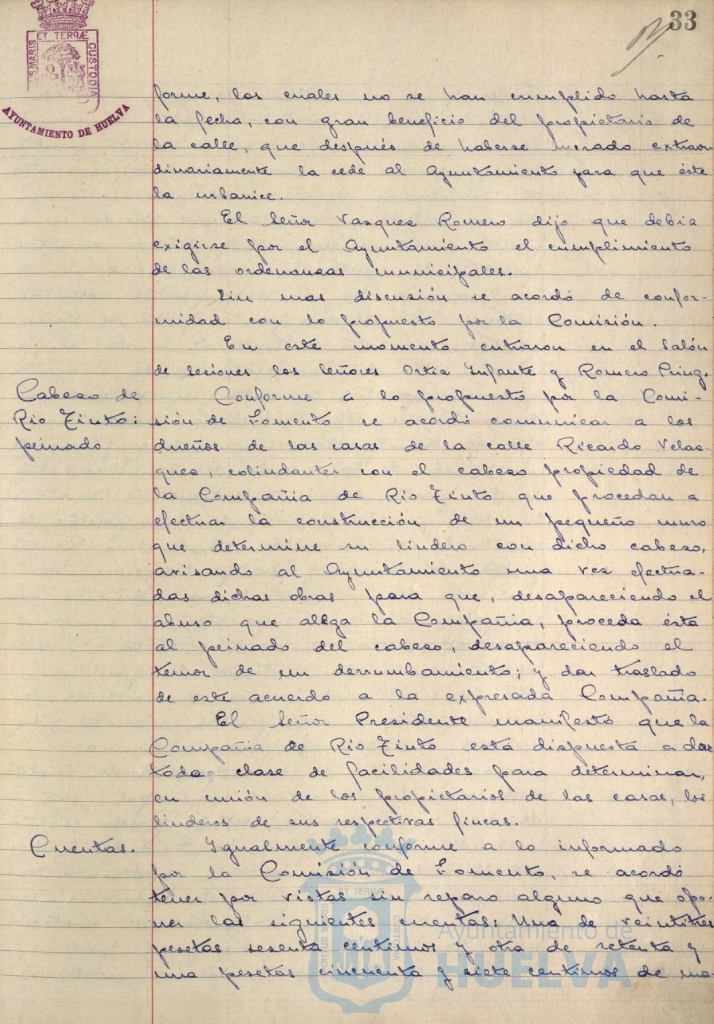 33
PORTUS MARIS ET TERRÆ CUSTODIA
AYUNTAMIENTO DE HUELVA
forme, los cuales no se han cumplido hasta
la fecha, con gran beneficio del propietario de
la calle, que después de haberse lucrado extraor
dinariamente la cede al Ayuntamiento para que éste
la urbanice.
El Señor Vazquez Romero dijo que debia
exigirse por el Ayuntamiento el cumplimiento
de las ordenanzas municipales.
Sin mas discusión se acordó de confor-
midad con lo propuesto por la Comisión.
En este momento entraron en el Salón
de seciones los Señores Ortiz Infante y Romero
Cabezo de
Rio Tinto:
peinado
Conforme a lo propuesto por la Comi-
sión de Fomento se acordó comunicar a los
dueños de las casas de la calle Ricardo Velaz-
quez, colindantes con el cabezo propiedad de
la Compañia de Rio Tinto que procedan a
efectuar la construcción de un pequeño muro
que determine su lindero con dicho cabezo,
avisando al Ayuntamiento una vez efectua-
das dichas obras para que, desapareciendo el
abuso que alega la Compañia, proceda ésta
al peinado del cabezo, desapareciendo el
temor de un derrumbamiento; y dar traslado
de este acuerdo a la expresada Compañia.
El Señor Presidente manifestó que la
Compañia de Rio Tinto está dispuesta a dar
toda clase de facilidades para determinar,
en unión de los propietarios de las casas, los
linderos de sus respectivas fincas.
Cuentas.
Igualmente conforme a lo informado
por la Comisión de Fomento, se acordó
tener por vistas sin reparo alguno que opo-
ner las siguientes cuentas: Una de veintitres
pesetas sesenta centimos y otra de setenta y
una pesetas cincuenta y siete centimos de ma-
Ayuntamiento de
HUELVA